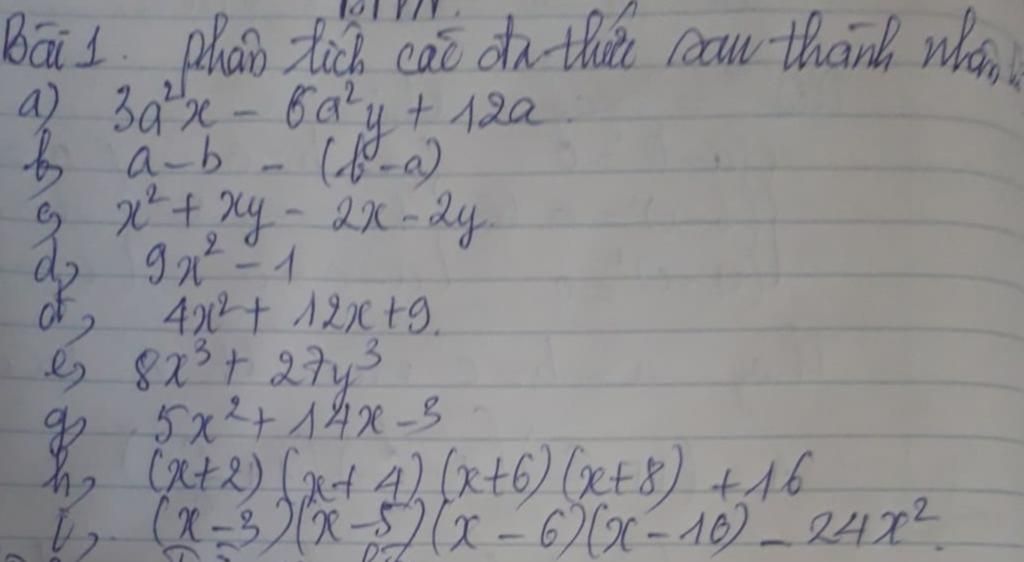 Bài 1. phân tích các đa thức sau thành nhân
a) 3a²x - 6a²y + 12a.
b, a - b - (b - a)
c, x² + xy - 2x - 2y.
d, 9x² - 1
đ, 4x² + 12x + 9.
e, 8x³ + 27y³
g, 5x² + 14x - 3
h, (x+2) (x+4) (x+6) (x+8) + 16
i, (x-3)(x-5)(x-6)(x-10) - 24x².